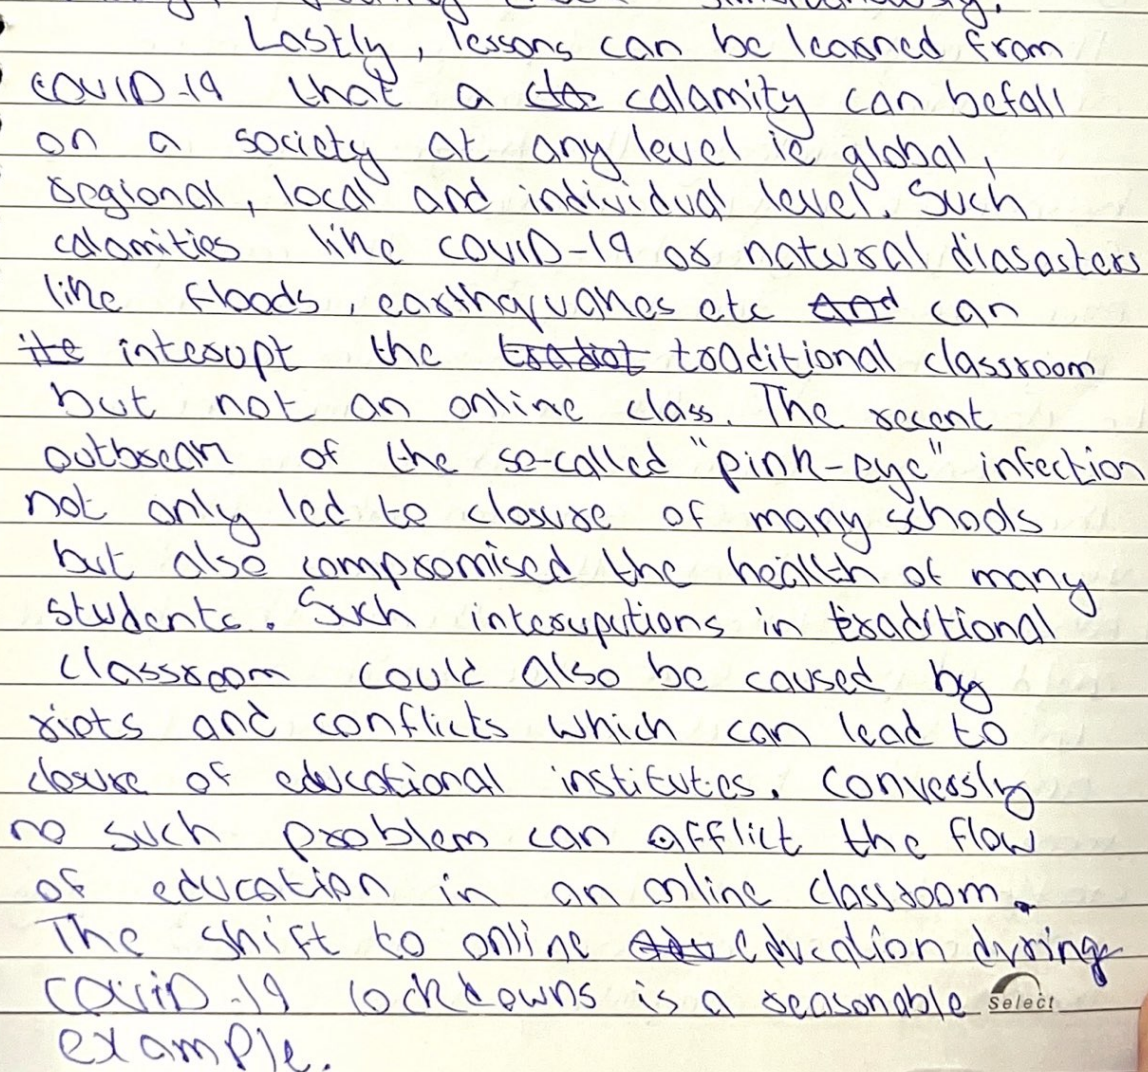 Lastly, lessons can be learned from
COVID-19 that a calamity can befall
on a society at any level ie global,
regional, local and individual level. Such
calamities like COVID-19 or natural diasasters
like floods, earthquakes etc And can
its interupt the tradiot traditional classroom
but not an online class. The recent
outbreak of the so-called "pink-eye" infection
not only led to closure of many schools
but also compromised the health of many
students. Such interuputions in traditional
classroom could also be caused by
riots and conflicts which can lead to
closure of educational institutes. Conversly
no such problem can afflict the flow
of education in an online classroom.
The shift to online education during
COVID-19 lockdowns is a reasonable
Select
example.